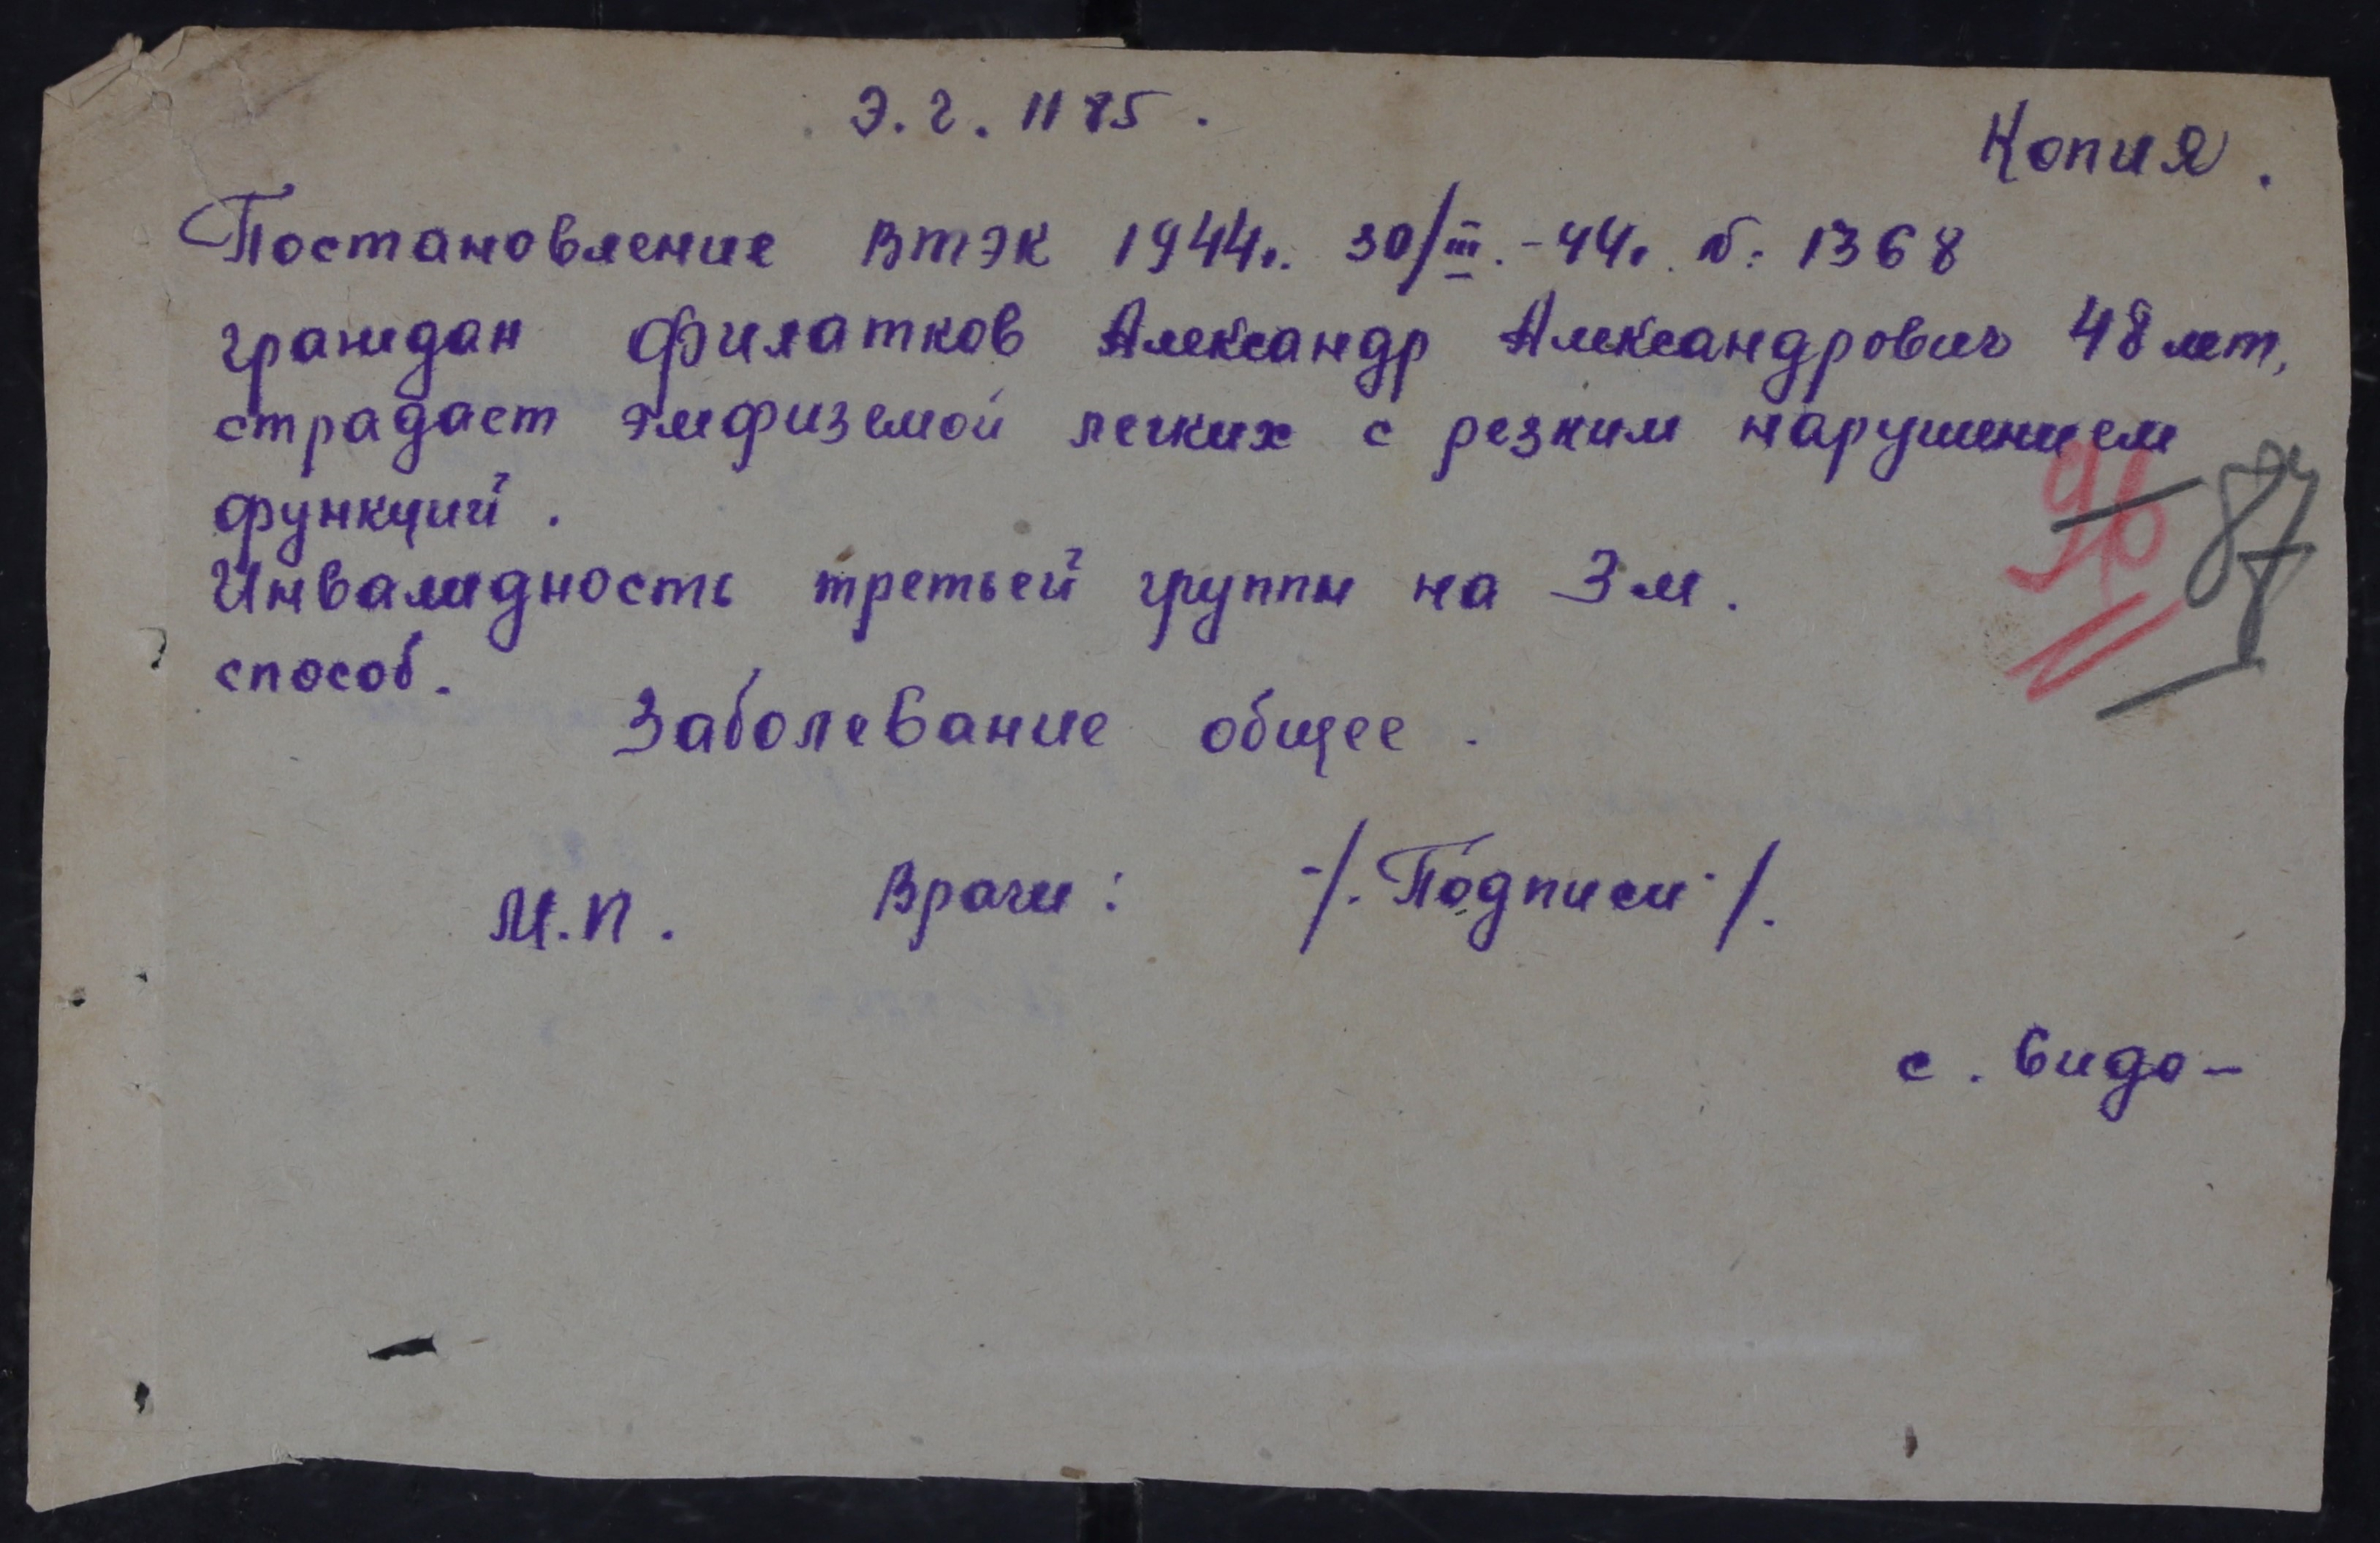 Э. г. 1185.
Копия.
Постановление ВТЭК 1944г. 30/III.-44г. N: 1368
граждан Филатков Александр Александрович 48 лет,
страдает эмфиземой легких с резким нарушением
96 87
функций.
Инвалидность третьей группы на 3 м.
способ.
Заболевание общее.
М.П. Врачи: -/. Подписи /.
с. видо-